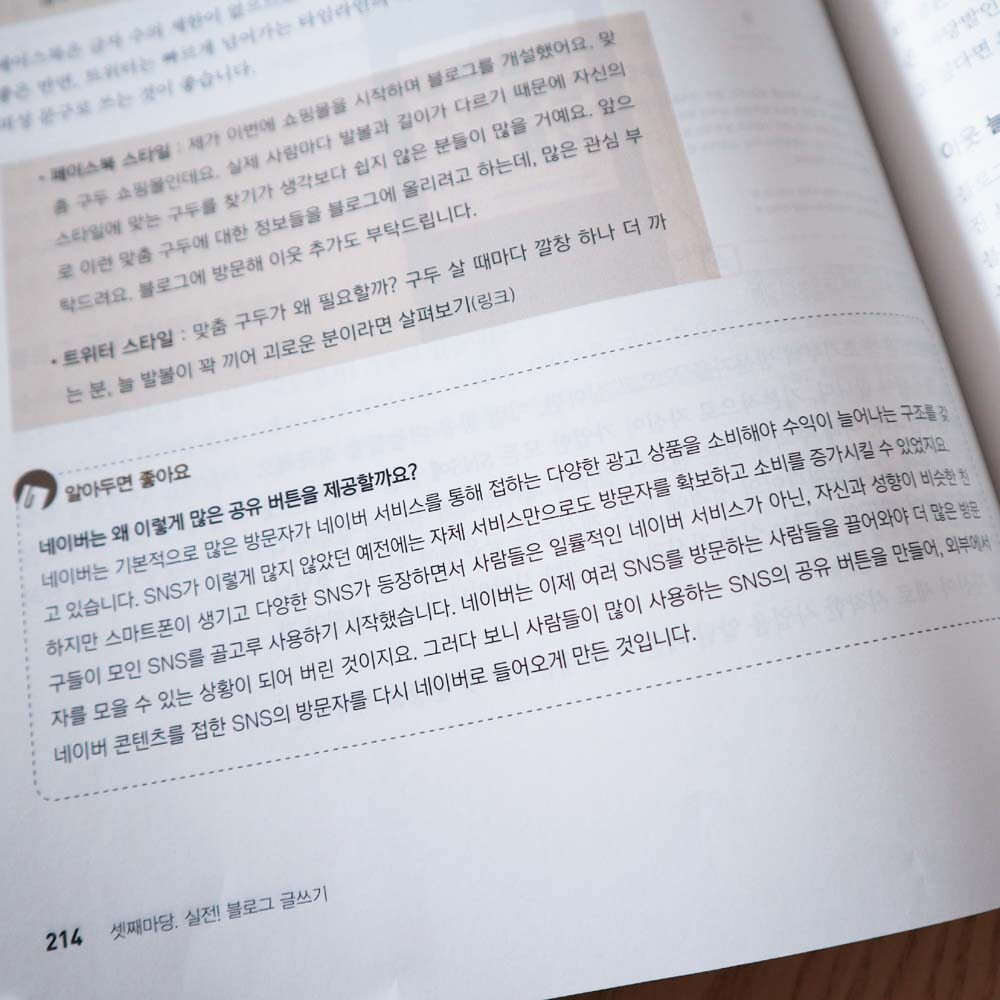 페이스북은 글자 수의 제한이 없으므로
좋은 반면, 트위터는 빠르게 넘어가는 타임라인의
문구로 쓰는 것이 좋습니다.
• 페이스북 스타일 : 제가 이번에 쇼핑몰을 시작하며 블로그를 개설했어요. 맞
춤 구두 쇼핑몰인데요. 실제 사람마다 발볼과 길이가 다르기 때문에 자신의
스타일에 맞는 구두를 찾기가 생각보다 쉽지 않은 분들이 많을 거예요. 앞으
로 이런 맞춤 구두에 대한 정보들을 블로그에 올리려고 하는데, 많은 관심 부
탁드려요. 블로그에 방문해 이웃 추가도 부탁드립니다.
• 트위터 스타일 : 맞춤 구두가 왜 필요할까? 구두 살 때마다 깔창 하나 더 까
는 분, 늘 발볼이 꽉 끼어 괴로운 분이라면 살펴보기(링크)
알아두면 좋아요
네이버는 왜 이렇게 많은 공유 버튼을 제공할까요?
네이버는 기본적으로 많은 방문자가 네이버 서비스를 통해 접하는 다양한 광고 상품을 소비해야 수익이 늘어나는 구조를 갖
고 있습니다. SNS가 이렇게 많지 않았던 예전에는 자체 서비스만으로도 방문자를 확보하고 소비를 증가시킬 수 있었지요.
하지만 스마트폰이 생기고 다양한 SNS가 등장하면서 사람들은 일률적인 네이버 서비스가 아닌, 자신과 성향이 비슷한 친
구들이 모인 SNS를 골고루 사용하기 시작했습니다. 네이버는 이제 여러 SNS를 방문하는 사람들을 끌어와야 더 많은 방문
자를 모을 수 있는 상황이 되어 버린 것이지요. 그러다 보니 사람들이 많이 사용하는 SNS의 공유 버튼을 만들어, 외부에서
네이버 콘텐츠를 접한 SNS의 방문자를 다시 네이버로 들어오게 만든 것입니다.
214 셋째마당. 실전! 블로그 글쓰기